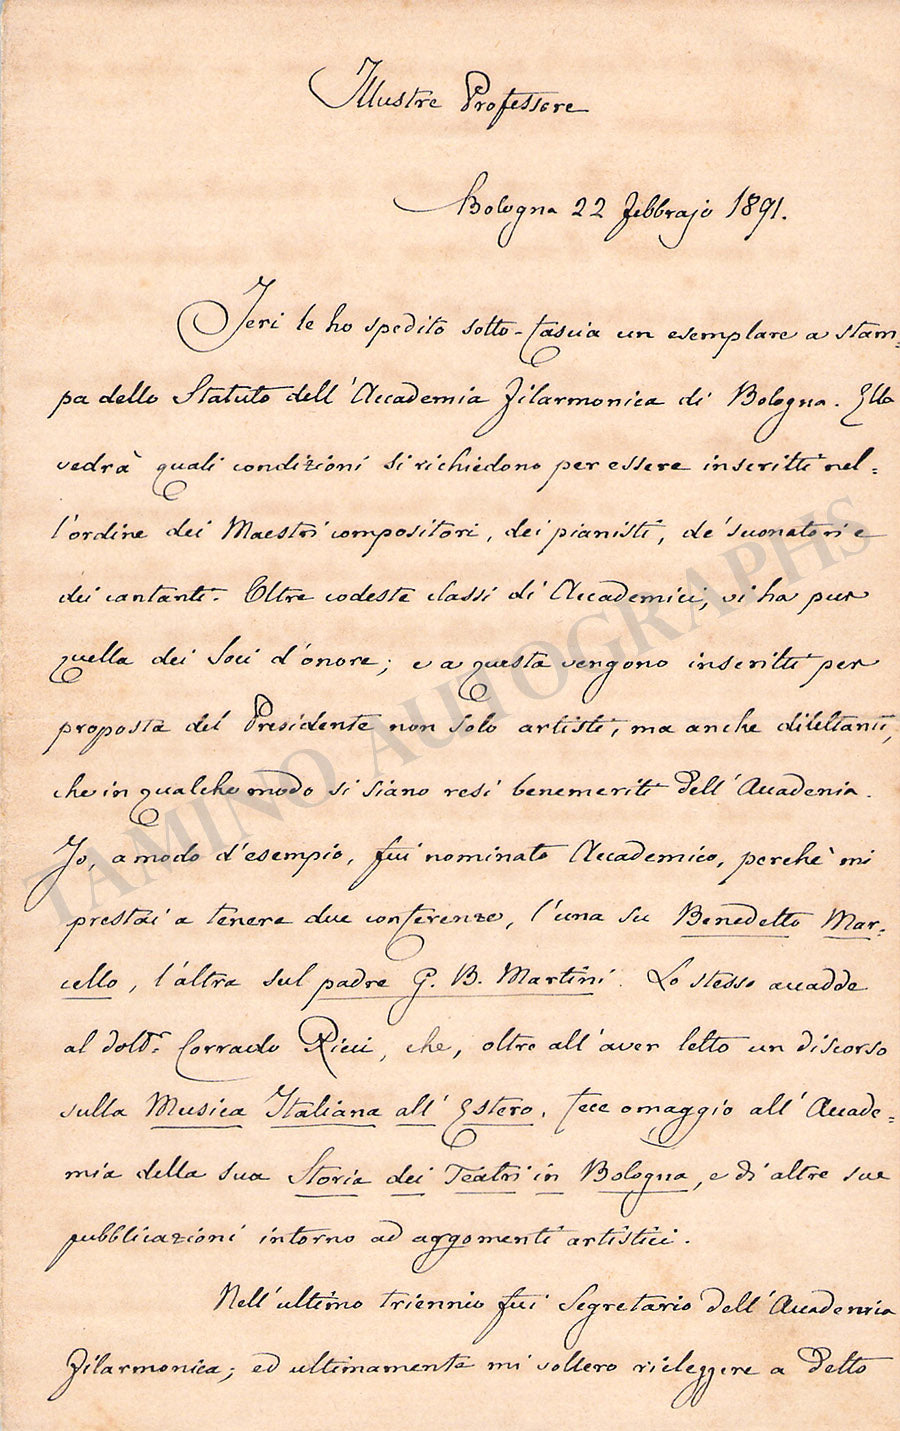 Illustre Professore
Bologna 22 febbrajo 1891.
Jeri le ho spedito sotto-fascia un esemplare a stam=
pa dello Statuto dell'Accademia Filarmonica di Bologna. Ella
vedrà quali condizioni si richiedono per essere inscritti nel=
l'ordine dei Maestri compositori, dei pianisti, de' suonatori e
dei cantanti. Oltre codeste classi di Accademici, vi ha pur
quella dei Soci d'onore; e a questa vengono inscritti per
proposta del Presidente non solo artisti, ma anche dilettanti,
che in qualche modo si siano resi benemeriti dell'Accademia.
Jo, a modo d'esempio, fui nominato Accademico, perchè mi
prestai a tenere due conferenze, l'una su Benedetto Mar=
cello, l'altra sul padre G. B. Martini. Lo stesso accadde
al dottr. Corrado Ricci, che, oltre all'aver letto un discorso
sulla Musica Italiana all'Estero, fece omaggio all'Accade=
mia della sua Storia dei Teatri in Bologna, e di altre sue
pubblicazioni intorno ad aggomenti artistici.
Nell'ultimo triennio fui Segretario dell'Accademia
Filarmonica; ed ultimamente mi vollero rieleggere a detto
TAMINO AUTOGRAPHS